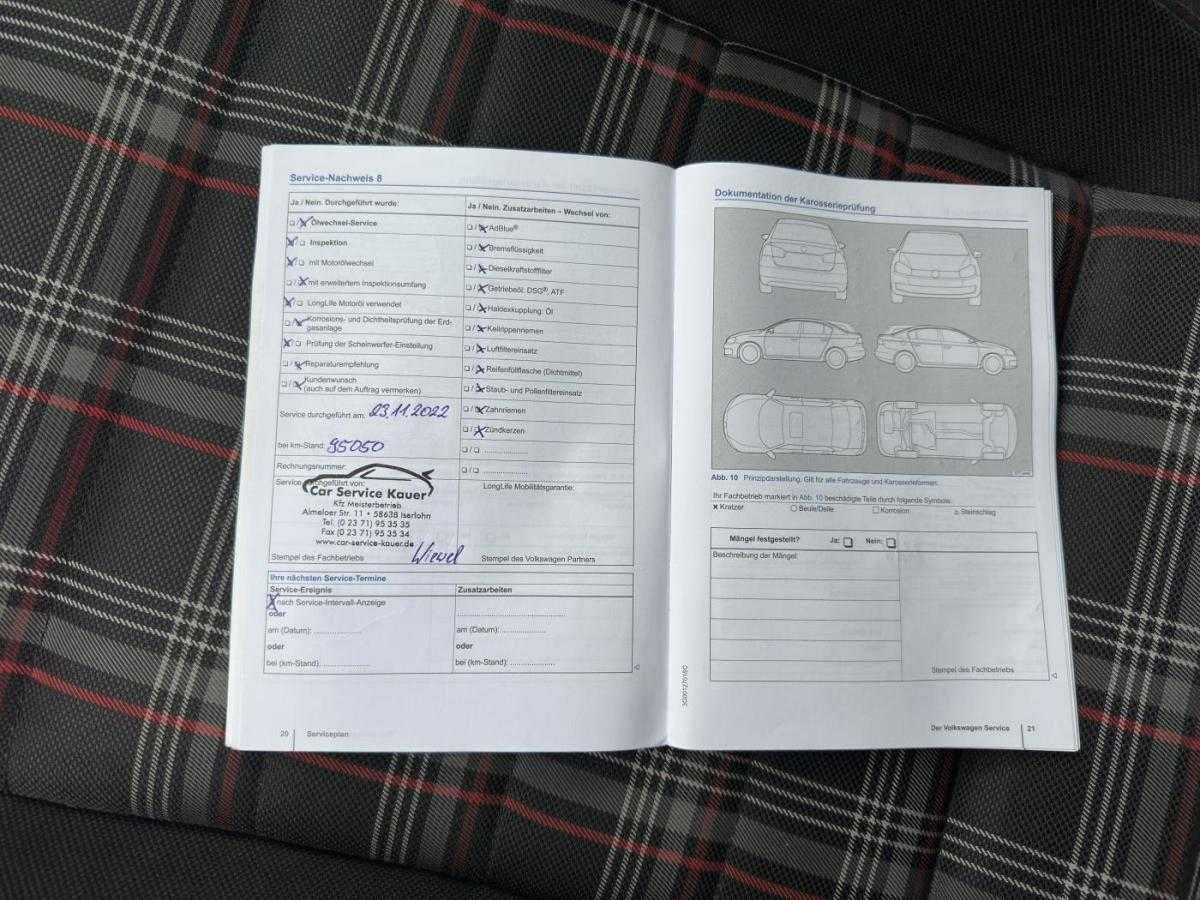 Service-Nachweis 8
Ja / Nein. Durchgeführt wurde:
☐/☒ Ölwechsel-Service
☒/☐ Inspektion
☒/☐ mit Motorölwechsel
☐/☒ mit erweitertem Inspektionsumfang
☒/☐ LongLife Motoröl verwendet
☐/☒ Korrosions- und Dichtheitsprüfung der Erd-
gasanlage
☒/☐ Prüfung der Scheinwerfer-Einstellung
☐/☒ Reparaturempfehlung
☐/☒ Kundenwunsch
(auch auf dem Auftrag vermerken)
Service durchgeführt am: 23.11.2022
bei km-Stand: 95050
Rechnungsnummer:
Service durchgeführt von:
Car Service Kauer
Kfz Meisterbetrieb
Almeloer Str. 11 • 58638 Iserlohn
Tel. (0 23 71) 95 35 35
Fax (0 23 71) 95 35 34
www.car-service-kauer.de
Stempel des Fachbetriebs
Ja / Nein. Zusatzarbeiten – Wechsel von:
☐/☒ AdBlue®
☐/☒ Bremsflüssigkeit
☐/☒ Dieselkraftstofffilter
☐/☒ Getriebeöl: DSG®, ATF
☐/☒ Haldexkupplung: Öl
☐/☒ Keilrippenriemen
☐/☒ Luftfiltereinsatz
☐/☒ Reifenfüllflasche (Dichtmittel)
☐/☒ Staub- und Pollenfiltereinsatz
☐/☒ Zahnriemen
☐/☒ Zündkerzen
☐/☐ ....................
☐/☐ ....................
LongLife Mobilitätsgarantie:
Stempel des Volkswagen Partners
Ihre nächsten Service-Termine
Service-Ereignis
☒ nach Service-Intervall-Anzeige
oder
am (Datum): ....................
oder
bei (km-Stand): ....................
Zusatzarbeiten
am (Datum): ....................
oder
bei (km-Stand): ....................
20 Serviceplan
Dokumentation der Karosserieprüfung
Abb. 10 Prinzipdarstellung. Gilt für alle Fahrzeuge und Karosserieformen.
Ihr Fachbetrieb markiert in Abb. 10 beschädigte Teile durch folgende Symbole:
x Kratzer ○ Beule/Delle ☐ Korrosion △ Steinschlag
Mängel festgestellt? Ja: ☐ Nein: ☐
Beschreibung der Mängel:
Stempel des Fachbetriebs
Der Volkswagen Service 21